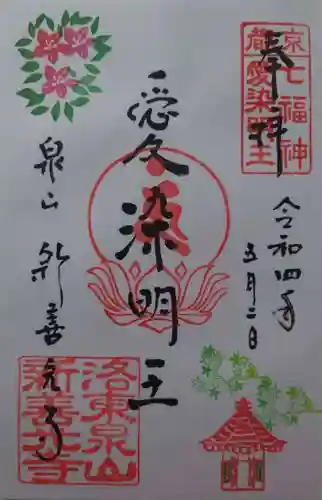 奉拝
七福神
愛染明王
令和四年
五月二日
愛染明王
泉山 新善光寺
洛東泉山
新善光寺